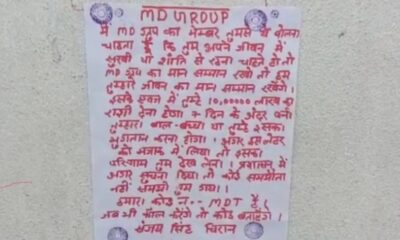 MD GROUP
मैं MD ग्रुप का मेम्बर तुमसे ये बोलना
चाहता हूँ कि तुम अपने जीवन में
सुखी या शांति से रहना चाहते हो तो
MD ग्रुप का मान सम्मान रखो तो हम
तुम्हारे जीवन का मान सम्मान रखेंगे।
इसके एवज में तुम्हें 10,00000 लाख का
राशी देना होगा 7 दिन के अंदर
तुम्हारा बाल-बच्चा या तुम्हें इसका
भुगतान करना होगा। अगर इस लेटर
को मजाक में लिया तो इसका
परिणाम तुम देख लेना। प्रशासन में
अगर सूचना दिया तो कोई समझौता
नहीं समझो तुम गया।
हमारा कोड नं.-- MDT है।
जब भी कॉल करेंगे तो कोड बताएंगे।
संजय सिंह